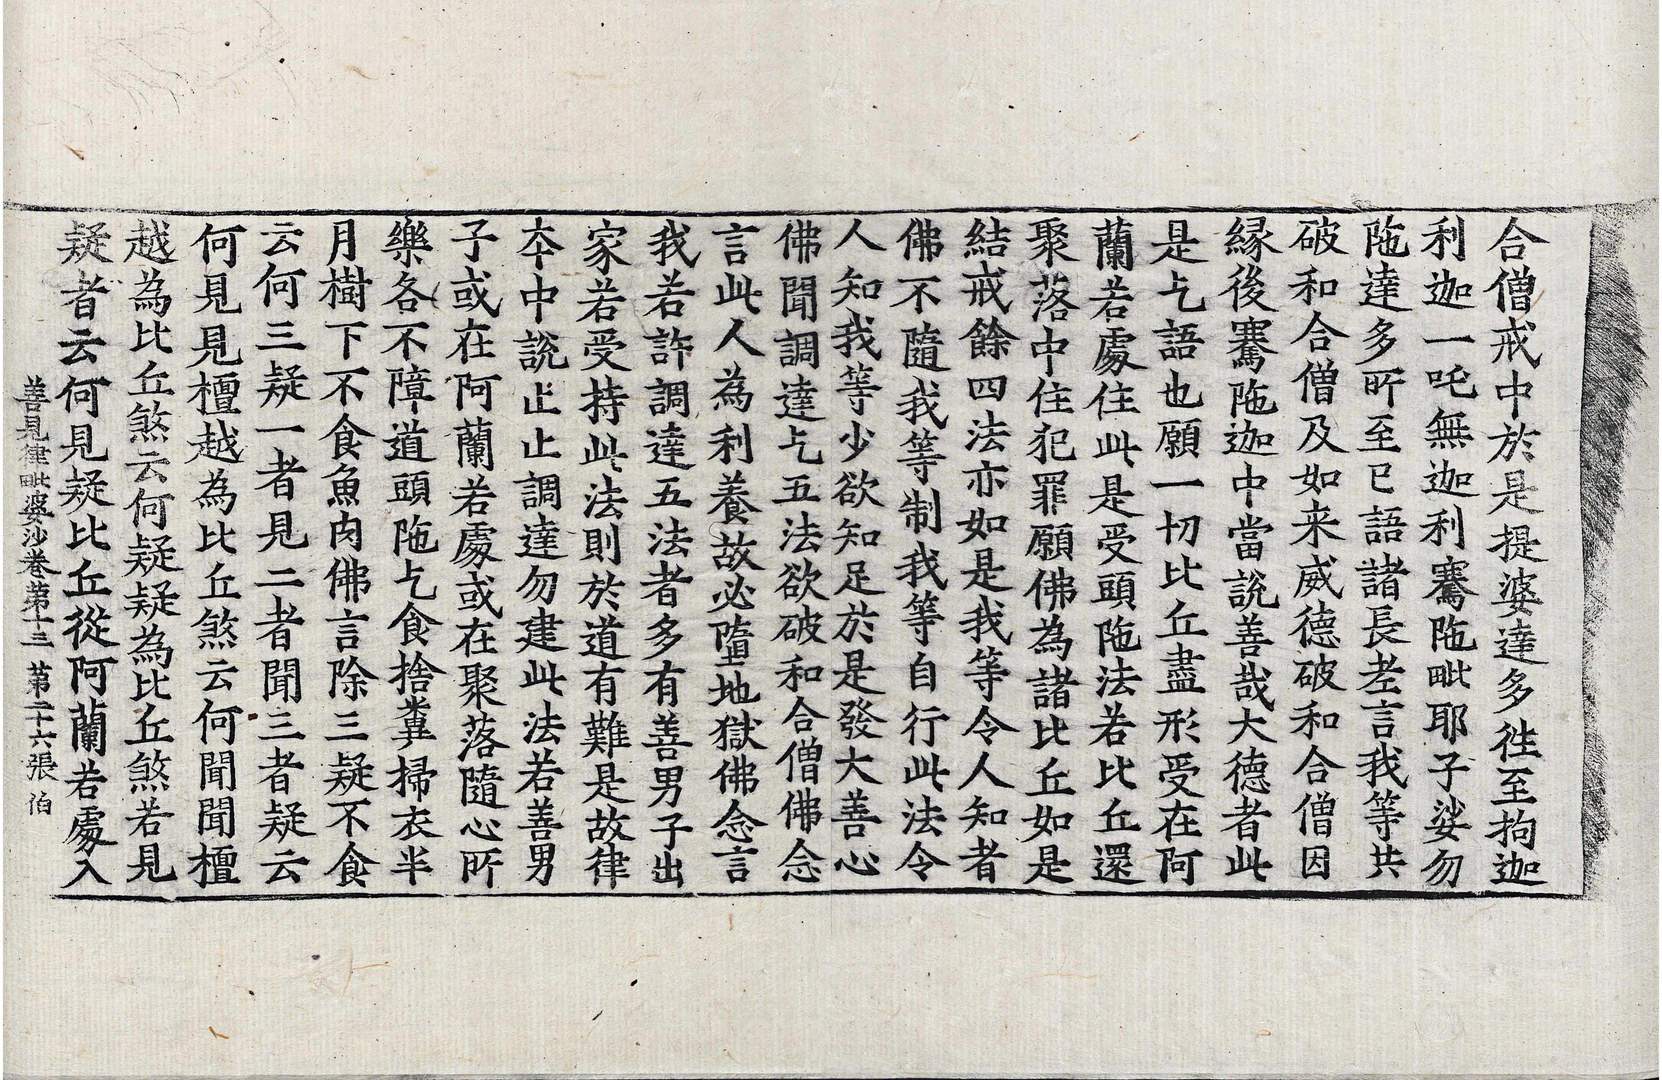 合僧戒中於是提婆達多徃至拘迦
利迦一吒無迦利騫陁毗耶子娑勿
陁達多所至已語諸長老言我等共
破和合僧及如来威德破和合僧因
縁後騫陁迦中當說善哉大德者此
是乞語也願一切比丘盡形受在阿
蘭若處住此是受頭陁法若比丘還
聚落中住犯罪願佛為諸比丘如是
結戒餘四法亦如是我等令人知者
佛不隨我等制我等自行此法令
人知我等少欲知足於是發大善心
佛聞調達乞五法欲破和合僧佛念
言此人為利養故必墮地獄佛念言
我若許調達五法者多有善男子出
家若受持此法則於道有難是故律
夲中說止止調達勿建此法若善男
子或在阿蘭若處或在聚落隨心所
樂各不障道頭陁乞食捨糞掃衣半
月樹下不食魚肉佛言除三疑不食
云何三疑一者見二者聞三者疑云
何見見檀越為比丘煞云何聞聞檀
越為比丘煞云何疑疑為比丘煞若見
疑者云何見疑比丘從阿蘭若處入
善見律毗婆沙卷第十三 第二十六張 伯